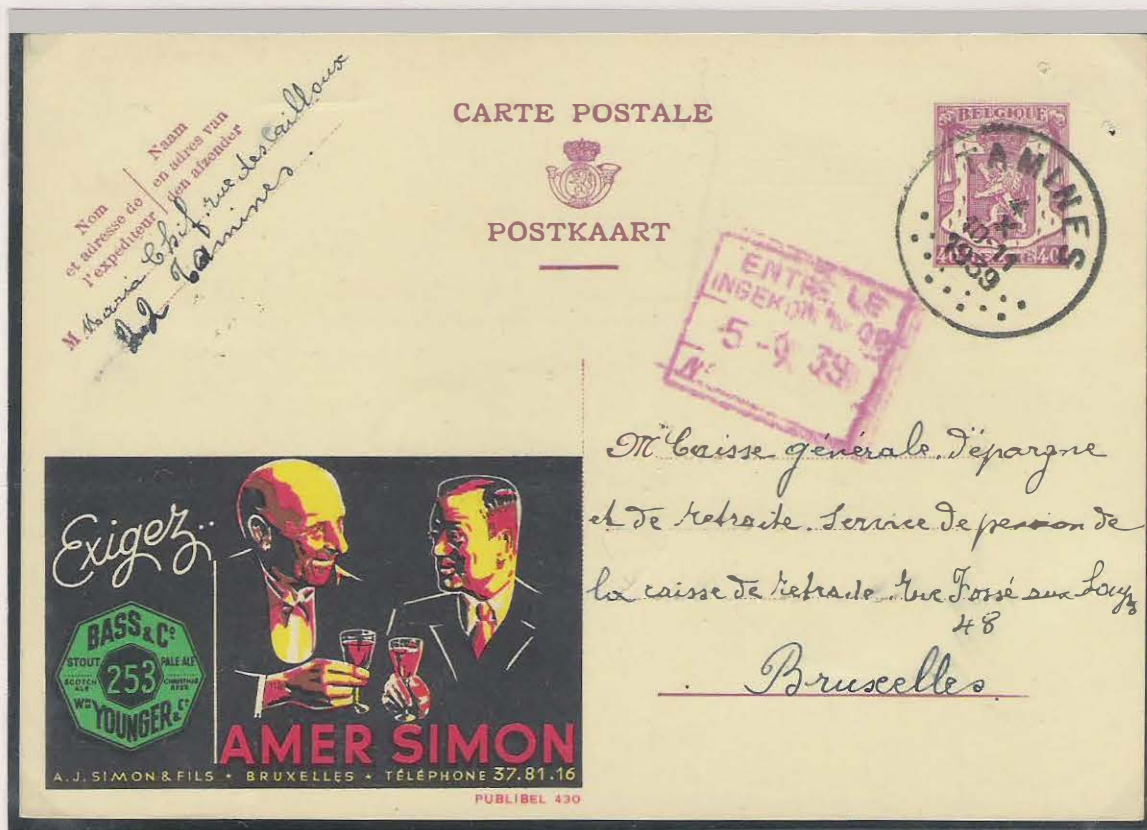 CARTE POSTALE
POSTKAART
Nom
et adresse de
l'expéditeur
Naam
en adres van
den afzender
M Maria Chif rue des Cailloux
Tamines.
BELGIQUE
40 40
TAMINES
10-11
1939
ENTRÉ LE
INGEKOMEN OP
5-9 39
N°
Mr Caisse générale d'épargne
et de retraite. Service de pension de
la caisse de retraite Rue Fossé aux Loups
48
Bruxelles.
Exigez..
BASS & Co
STOUT PALE ALE
253
SCOTCH ALE CHRISTMAS BEER
Wm YOUNGER & Co
AMER SIMON
A.J. SIMON & FILS • BRUXELLES • TÉLÉPHONE 37.81.16
PUBLIBEL 430